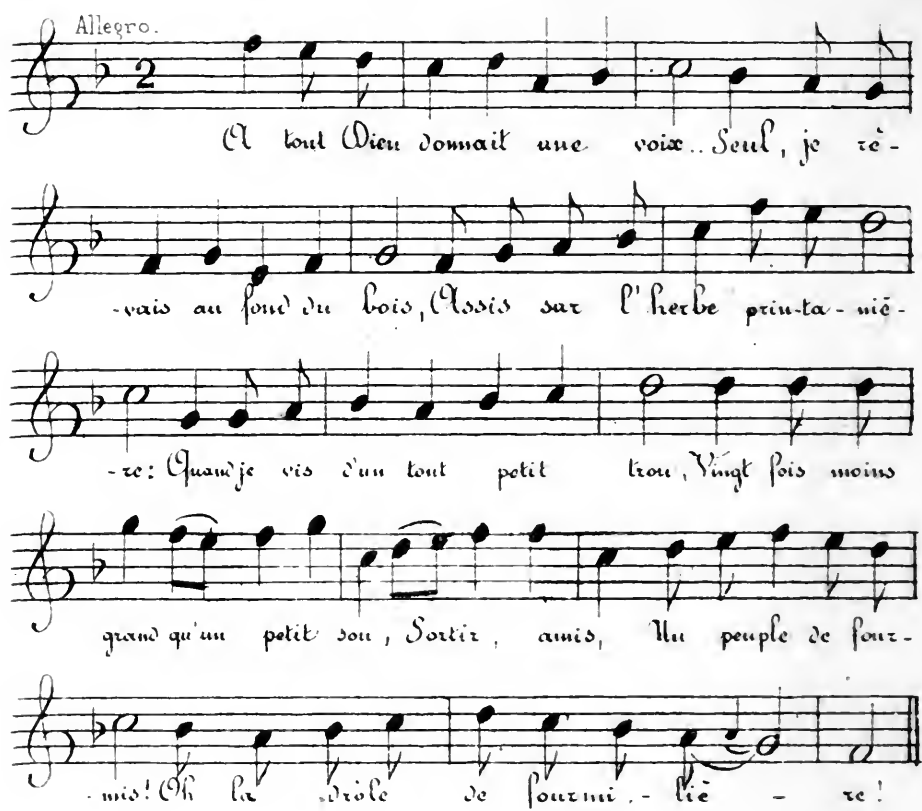 Allegro.
2
A tout Dieu donnait une voix.. Seul, je rê-
-vais au fond du bois, Assis sur l'herbe prin-ta-niè-
-re: Quand je vis d'un tout petit trou, Vingt fois moins
grand qu'un petit sou, Sortir, amis, Un peuple de four-
-mis! Oh la drôle de fourmi-liè-re!